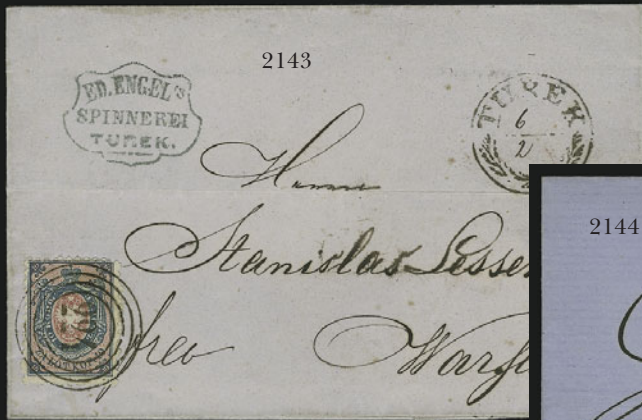 2143
ED. ENGEL'S
SPINNEREI
TUREK.
TUREK
6
2
Herrn
Stanislas Lesse
frco
Warsz
2144